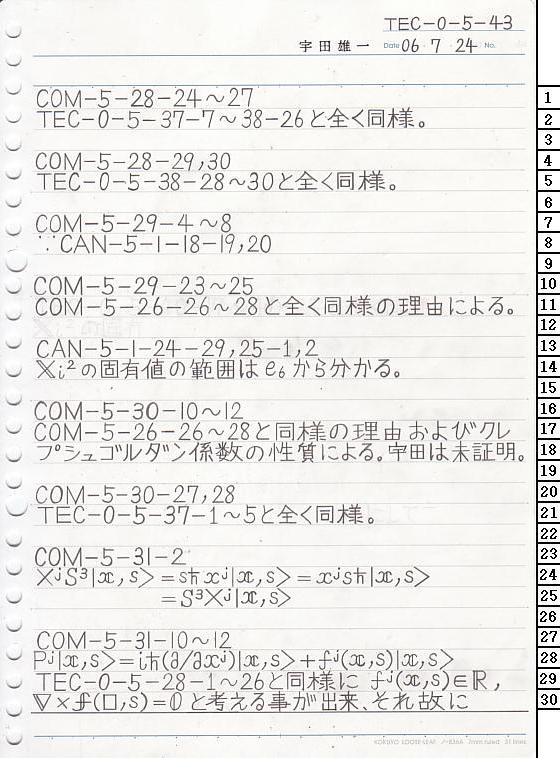 TEC-0-5-43
宇田雄一 Date 06・7・24 No.
COM-5-28-24~27
TEC-0-5-37-7~38-26と全く同様。
COM-5-28-29,30
TEC-0-5-38-28~30と全く同様。
COM-5-29-4~8
∵CAN-5-1-18-19,20
COM-5-29-23~25
COM-5-26-26~28と全く同様の理由による。
CAN-5-1-24-29,25-1,2
𝕏i²の固有値の範囲はe₆から分かる。
COM-5-30-10~12
COM-5-26-26~28と同様の理由およびクレ
プシュゴルダン係数の性質による。宇田は未証明。
COM-5-30-27,28
TEC-0-5-37-1~5と全く同様。
COM-5-31-2
XʲS³|𝕩,s> = sℏxʲ|𝕩,s> = xʲsℏ|𝕩,s>
= S³Xʲ|𝕩,s>
COM-5-31-10~12
Pʲ|𝕩,s> = iℏ(∂/∂xʲ)|𝕩,s> + fʲ(𝕩,s)|𝕩,s>
TEC-0-5-28-1~26と同様に fʲ(𝕩,s)∈ℝ,
∇×𝕗(□,s)=𝟘 と考える事が出来、それ故に
KOKUYO LOOSE-LEAF ノ-836A 7mm ruled 31 lines
1
2
3
4
5
6
7
8
9
10
11
12
13
14
15
16
17
18
19
20
21
22
23
24
25
26
27
28
29
30